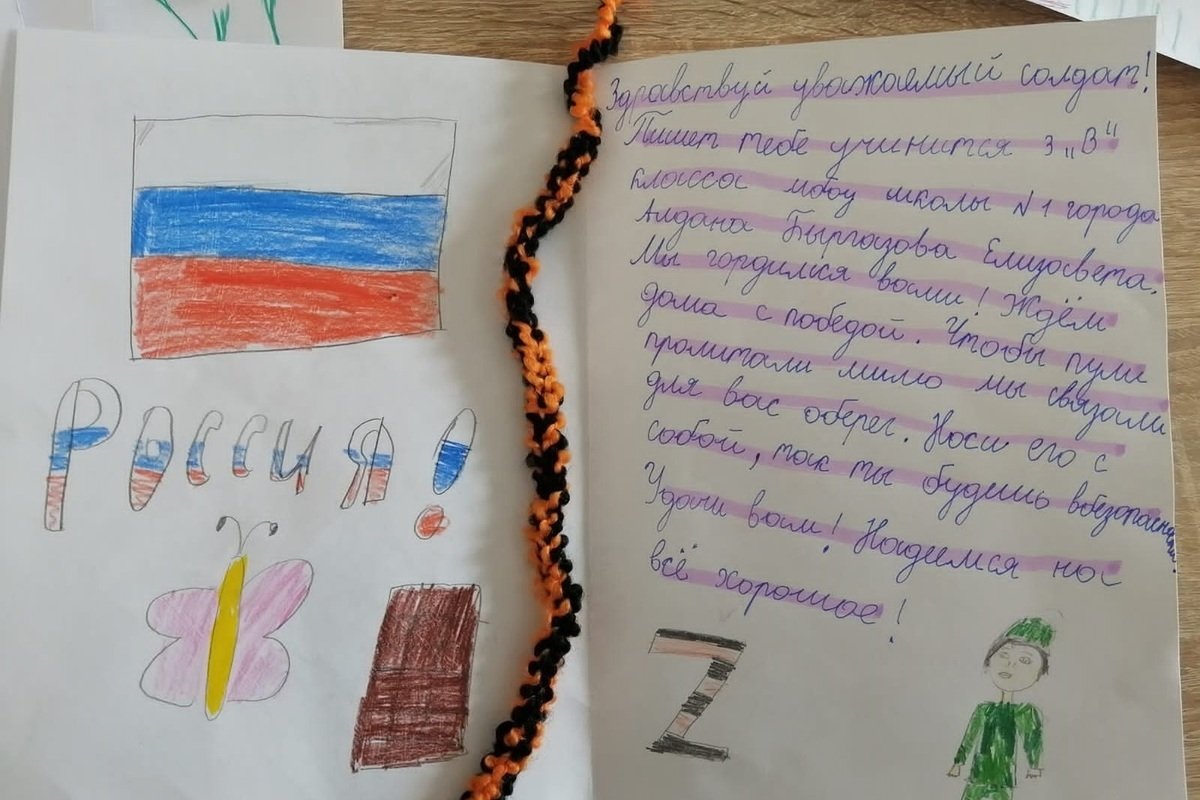 Россия!
Здравствуй уважаемый солдат!
Пишет тебе учинится 3 „В"
класса мбоу школы №1 города
Алдана Быргазова Елизавета.
Мы гордимся вами! Ждём
дома с победой. Чтобы пули
пролитали мимо мы связали
для вас оберег. Носи его с
собой, так ты будешь вбезопасности.
Удачи вам! Надиемся на
всё хорошее!
Z